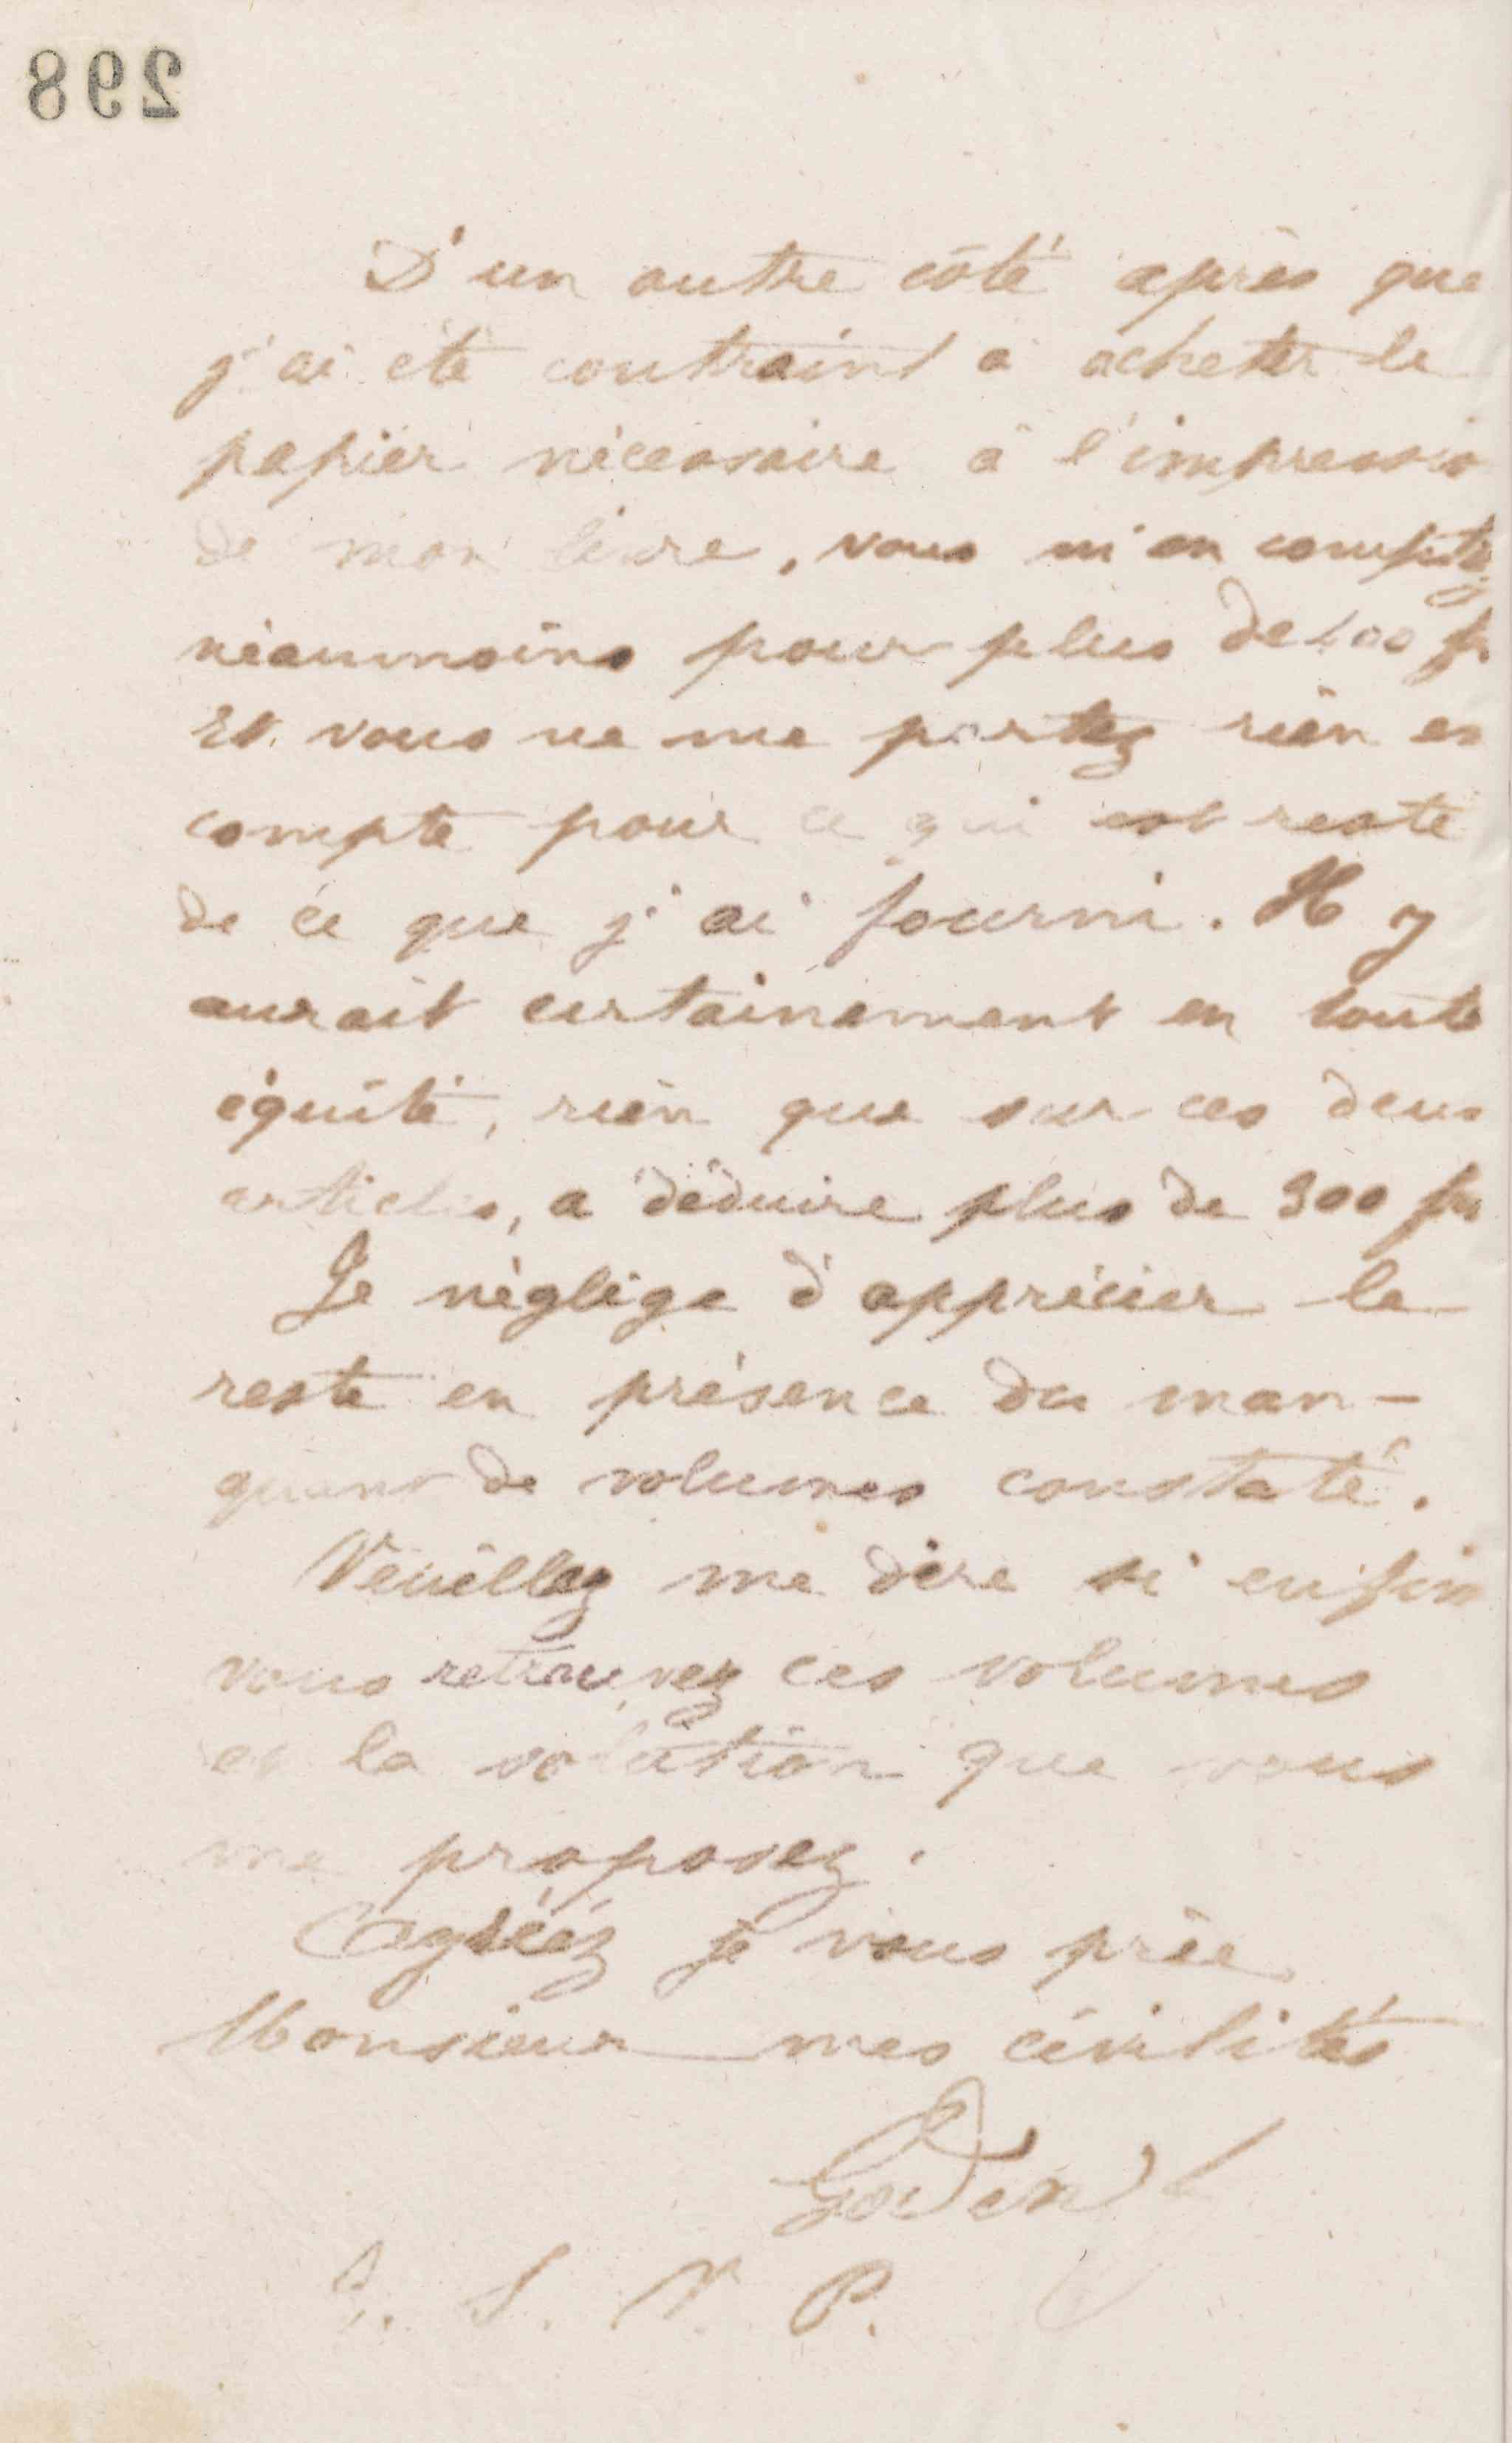 298
D'un autre côté après que
j'ai été contraint à acheter le
papier nécessaire à l'impression
de mon livre, vous m'en comptez
néanmoins pour plus de 100 fr.
Et vous ne me portez rien en
compte pour ce qui est resté
de ce que j'ai fourni. Il y
aurait certainement en toute
équité, rien que sur ces deux
articles, à déduire plus de 300 frs
Je néglige d'apprécier le
reste en présence du man-
quant de volumes constaté.
Veuillez me dire si enfin
vous retrouvez ces volumes
et la solution que vous
me proposez.
Agréez je vous prie
Monsieur mes civilités
Godin
R. S. V. P.